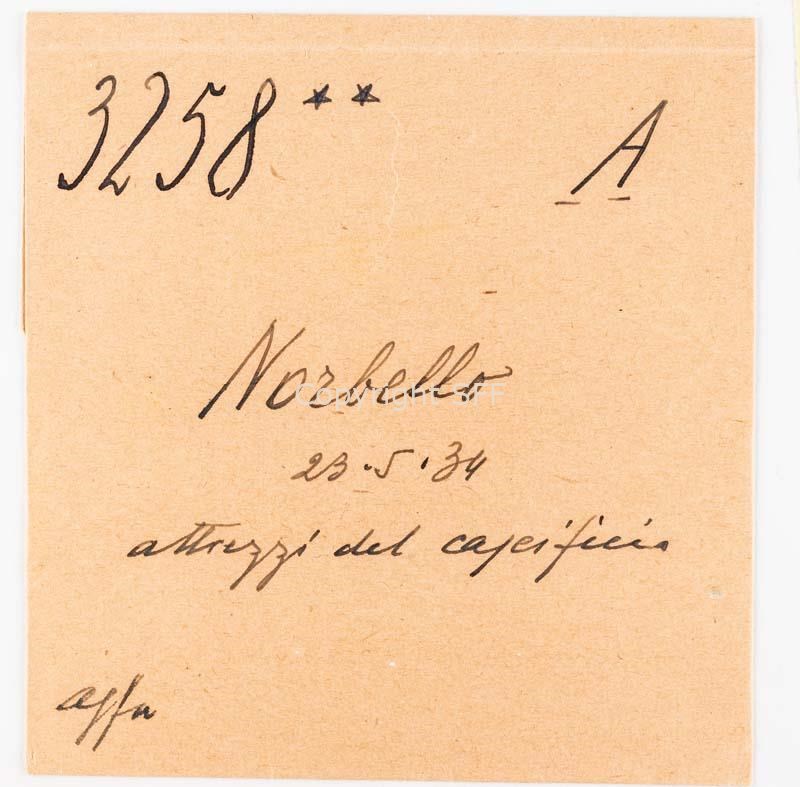 3258 ** A
Norbello
Copyright SFF
23.5.34
attrezzi del caseificio
agfa